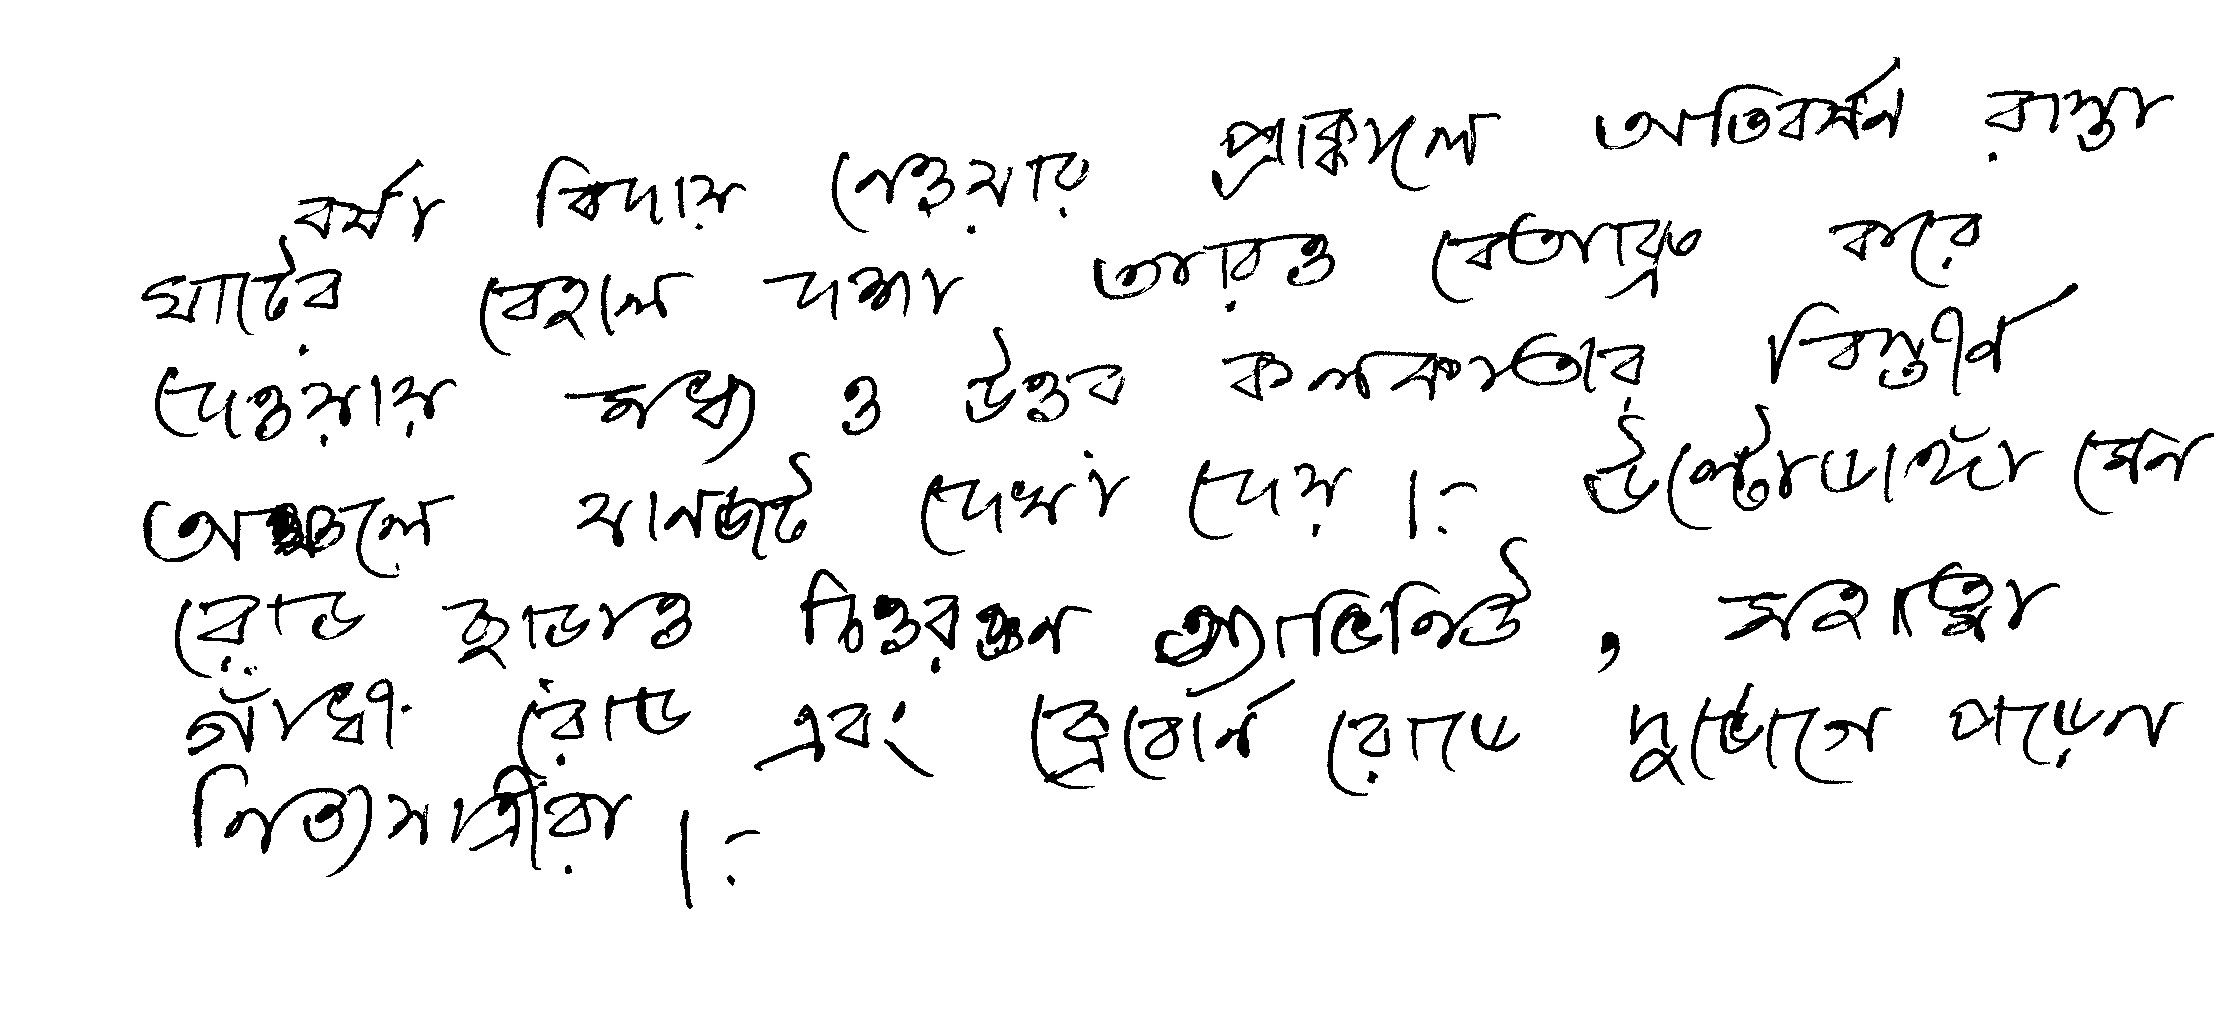 বর্ষা বিদায় নেওয়ার প্রাক্কালে অতিবর্ষন রাস্তা
ঘাটের বেহাল দশা আরও বেআব্রু করে
দেওয়ায় মধ্য ও উত্তর কলকাতার বিস্তীর্ণ
অঞ্চলে যানজট দেখা দেয় ।
উল্টোডাঙ্গা মেন
রোড ছাড়াও চিত্তরঞ্জন অ্যাভিনিউ , মহাত্মা
গাঁধী রোড এবং ব্রেবোর্ন রোডে দুর্ভোগে পড়েন
নিত্যযাত্রীরা ।